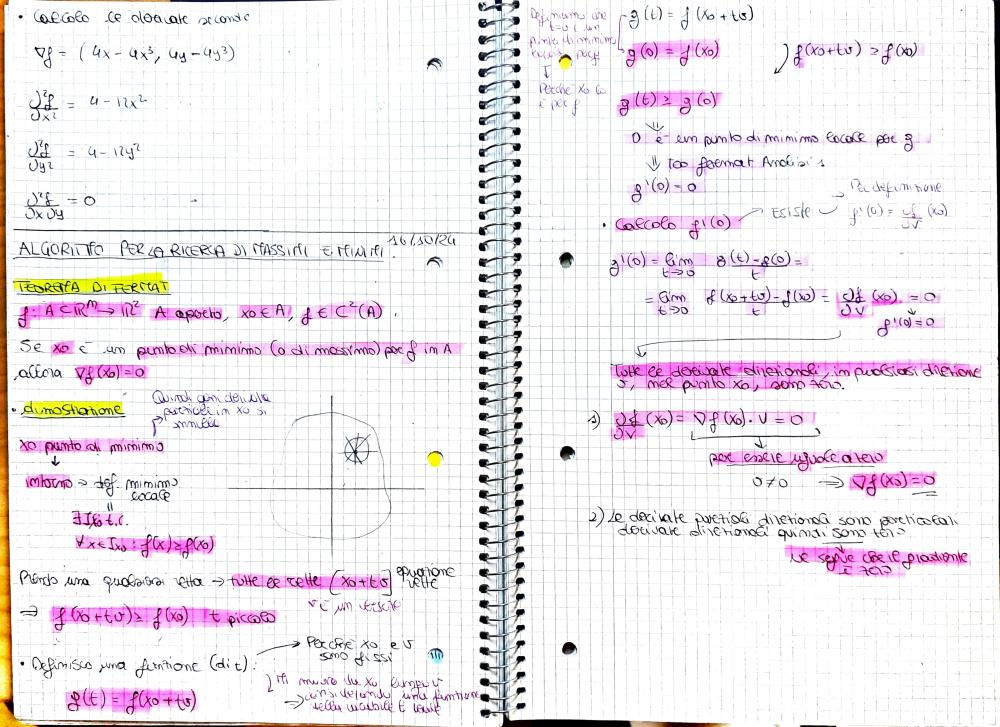 • Calcolo le derivate seconde
∇f = (4x - 4x³, 4y - 4y³)
∂²f/∂x² = 4 - 12x²
∂²f/∂y² = 4 - 12y²
∂²f/∂x∂y = 0
ALGORITMO PER LA RICERCA DI MASSIMI E MINIMI. 16/10/24
TEOREMA DI FERMAT
f: A ⊂ ℝᵐ → ℝ² A aperto, x₀ ∈ A, f ∈ C²(A).
Se x₀ è un punto di minimo (o di massimo) per f in A
allora ∇f(x₀) = 0
• dimostrazione
Quindi ogni derivata
parziale in x₀ si
annulla
x₀ punto di minimo
↓
intorno → def. minimo
locale
∃ Ix₀ t.c.
∀x ∈ Ix₀ : f(x) ≥ f(x₀)
Prendo una qualsiasi retta → tutte le rette [x₀ + tv] equazione
rette
v è un versore
⇒ f(x₀ + tv) ≥ f(x₀) t piccolo
→ Perché x₀ e v
sono fissi
• Definisco una funzione (di t):
g(t) = f(x₀ + tv)
Mi muovo da x₀ lungo v
→ considerando una funzione
della variabile t reale
Definiamo che
t=0 è un
punto di minimo
locale per g
↓
Perché x₀ lo
è per f
g(t) = f(x₀ + tv)
g(0) = f(x₀)
f(x₀ + tv) ≥ f(x₀)
g(t) ≥ g(0)
⇓
0 è un punto di minimo locale per g
⇓ Teo Fermat Analisi 1
g'(0) = 0
• Calcolo g'(0) → Esiste
Per definizione
g'(0) = ∂f/∂v (x₀)
g'(0) = lim t→0 g(t) - g(0)/t =
= lim t→0 f(x₀ + tv) - f(x₀)/t = ∂f/∂v (x₀) = 0
↓
g'(0) = 0
Tutte le derivate direzionali, in qualsiasi direzione
v, nel punto x₀, sono zero.
1) ∂f/∂v (x₀) = ∇f(x₀) · v = 0
↓
per essere uguale a zero
v ≠ 0 ⇒ ∇f(x₀) = 0
2) Le derivate parziali direzionali sono particolari
derivate direzionali quindi sono zero
↓
Ne segue che il gradiente
è zero